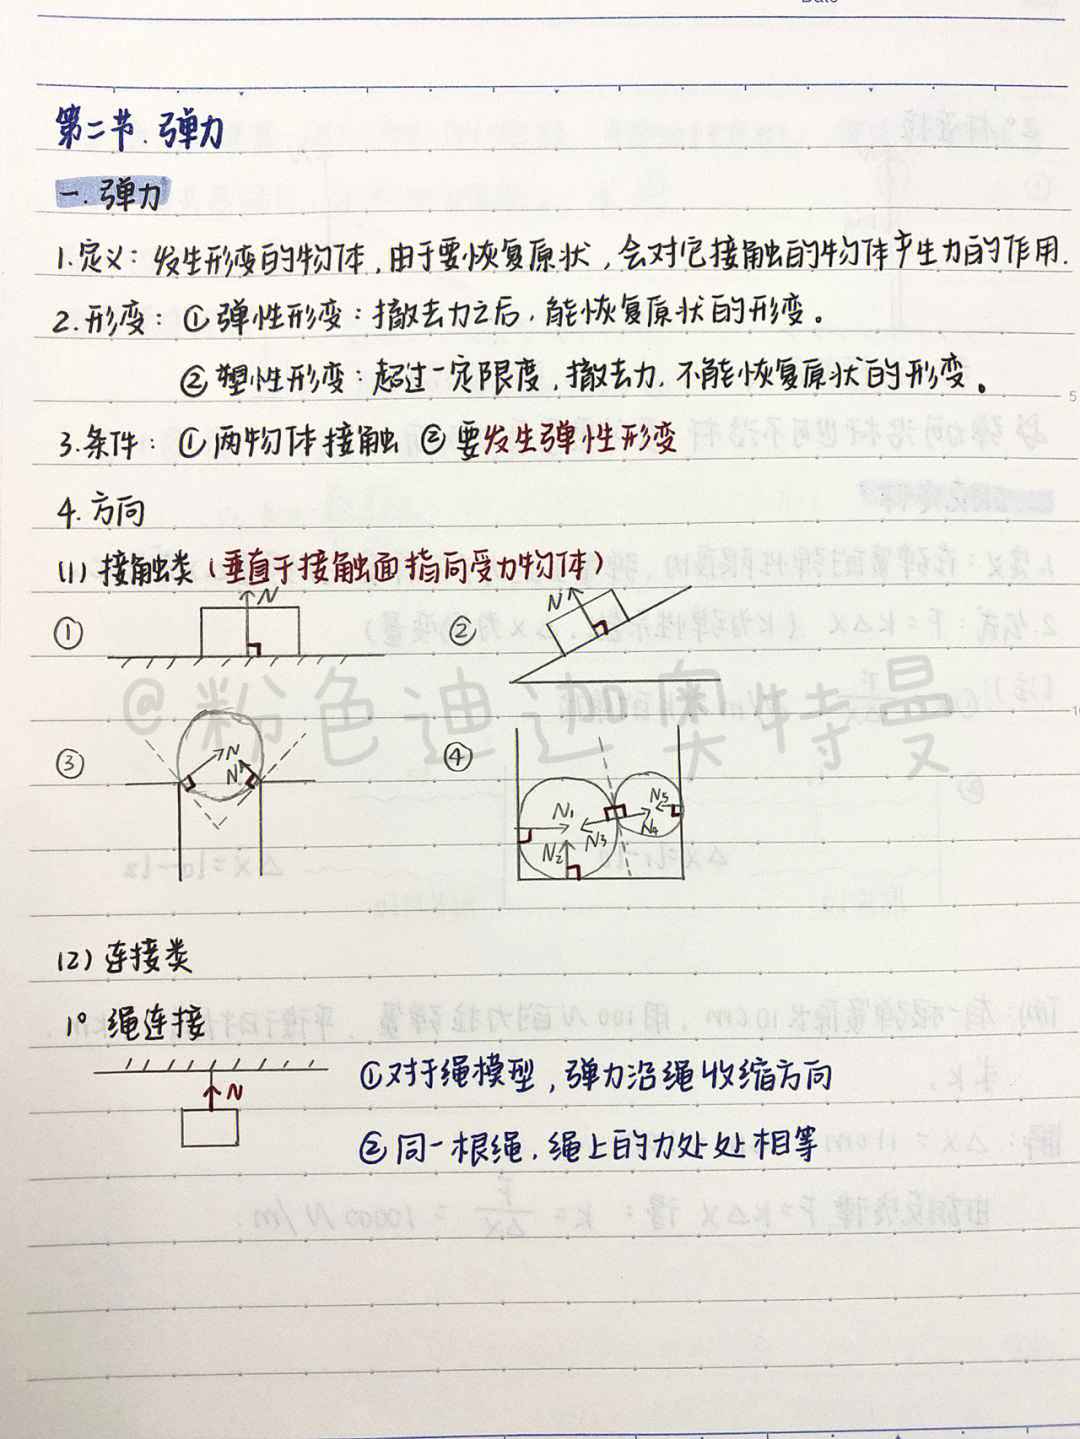 Date
第二节. 弹力
一. 弹力
1.定义：发生形变的物体，由于要恢复原状，会对它接触的物体产生力的作用.
2.形变：①弹性形变：撤去力之后，能恢复原状的形变。
②塑性形变：超过一定限度，撤去力，不能恢复原状的形变。
5
3.条件：①两物体接触 ②要发生弹性形变
4.方向
(1)接触类（垂直于接触面指向受力物体）
① N
② N
@粉色迪迦奥特曼
10
③ N N
④ N1 N2 N3 N4 N5
(2)连接类
1° 绳连接
N
①对于绳模型，弹力沿绳收缩方向
②同一根绳，绳上的力处处相等